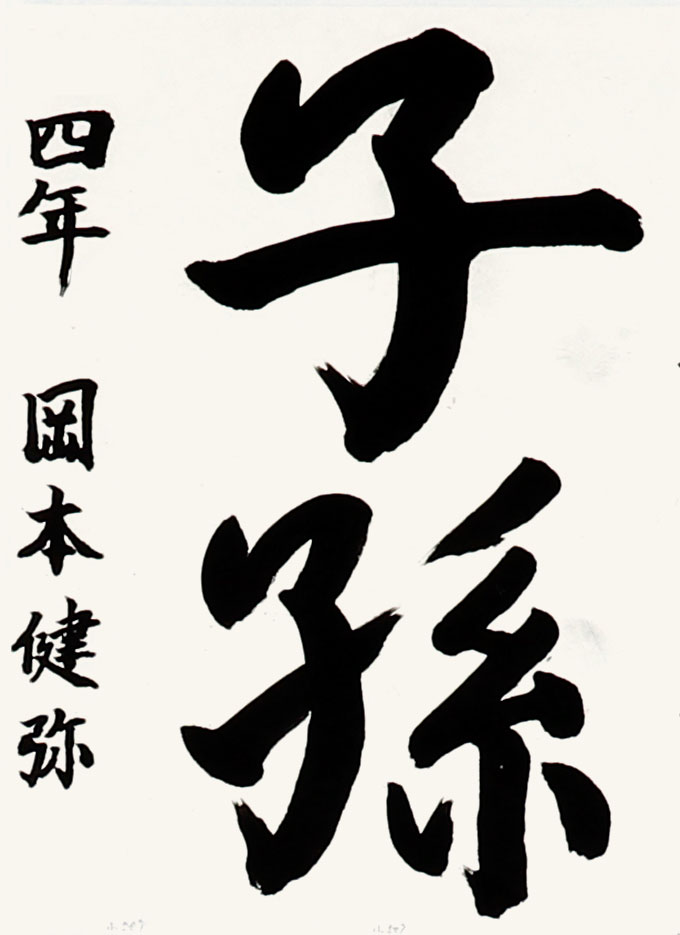 子孫
四年 岡本健弥